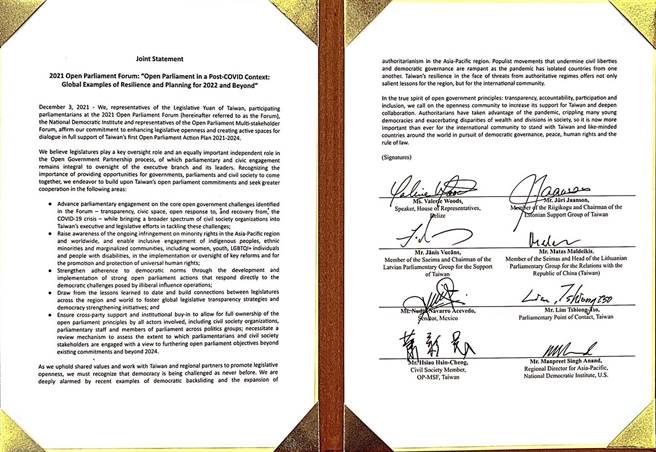 Joint Statement
2021 Open Parliament Forum: "Open Parliament in a Post-COVID Context:
Global Examples of Resilience and Planning for 2022 and Beyond"
December 3, 2021 - We, representatives of the Legislative Yuan of Taiwan, participating
parliamentarians at the 2021 Open Parliament Forum (hereinafter referred to as the Forum),
the National Democratic Institute and representatives of the Open Parliament Multi-stakeholder
Forum, affirm our commitment to enhancing legislative openness and creating active spaces for
dialogue in full support of Taiwan's first Open Parliament Action Plan 2021-2024.
We believe legislatures play a key oversight role and an equally important independent role in
the Open Government Partnership process, of which parliamentary and civic engagement
remains integral to oversight of the executive branch and its leaders. Recognising the
importance of providing opportunities for governments, parliaments and civil society to come
together, we endeavor to build upon Taiwan's open parliament commitments and seek greater
cooperation in the following areas:
● Advance parliamentary engagement on the core open government challenges identified
in the Forum – transparency, civic space, open response to, and recovery from, the
COVID-19 crisis – while bringing a broader spectrum of civil society organizations into
Taiwan's executive and legislative efforts in tackling these challenges;
● Raise awareness of the ongoing infringement on minority rights in the Asia-Pacific region
and worldwide, and enable inclusive engagement of indigenous peoples, ethnic
minorities and marginalized communities, including women, youth, LGBTQI+ individuals
and people with disabilities, in the implementation or oversight of key reforms and for
the promotion and protection of universal human rights;
● Strengthen adherence to democratic norms through the development and
implementation of strong open parliament actions that respond directly to the
democratic challenges posed by illiberal influence operations;
● Draw from the lessons learned to date and build connections between legislatures
across the region and world to foster global legislative transparency strategies and
democracy strengthening initiatives; and
● Ensure cross-party support and institutional buy-in to allow for full ownership of the
open parliament principles by all actors involved, including civil society organizations,
parliamentary staff and members of parliament across politics groups; necessitate a
review mechanism to assess the extent to which parliamentarians and civil society
stakeholders are engaged with a view to furthering open parliament objectives beyond
existing commitments and beyond 2024.
As we uphold shared values and work with Taiwan and regional partners to promote legislative
openness, we must recognize that democracy is being challenged as never before. We are
deeply alarmed by recent examples of democratic backsliding and the expansion of
authoritarianism in the Asia-Pacific region. Populist movements that undermine civil liberties
and democratic governance are rampant as the pandemic has isolated countries from one
another. Taiwan's resilience in the face of threats from authoritative regimes offers not only
salient lessons for the region, but for the international community.
In the true spirit of open government principles: transparency, accountability, participation and
inclusion, we call on the openness community to increase its support for Taiwan and deepen
collaboration. Authoritarians have taken advantage of the pandemic, crippling many young
democracies and exacerbating disparities of wealth and divisions in society, so it is now more
important than ever for the international community to stand with Taiwan and like-minded
countries around the world in pursuit of democratic governance, peace, human rights and the
rule of law.
(Signatures)
Valerie Woods
Ms. Valerie Woods,
Speaker, House of Representatives,
Belize
Mr. Jüri Jaanson,
Member of the Riigikogu and Chairman of the
Estonian Support Group of Taiwan
Mr. Jānis Vucāns,
Member of the Saeima and Chairman of the
Latvian Parliamentary Group for the Support
of Taiwan
Mr. Matas Maldeikis,
Member of the Seimas and Head of the Lithuanian
Parliamentary Group for the Relations with the
Republic of China (Taiwan)
Navarro Acevedo,
Senator, Mexico
Mr. Lim Tshiong-Tso,
Parliamentary Point of Contact, Taiwan
Mr. Hsiao Hsin-Cheng,
Civil Society Member,
OP-MSF, Taiwan
Mr. Manpreet Singh Anand,
Regional Director for Asia-Pacific,
National Democratic Institute, U.S.